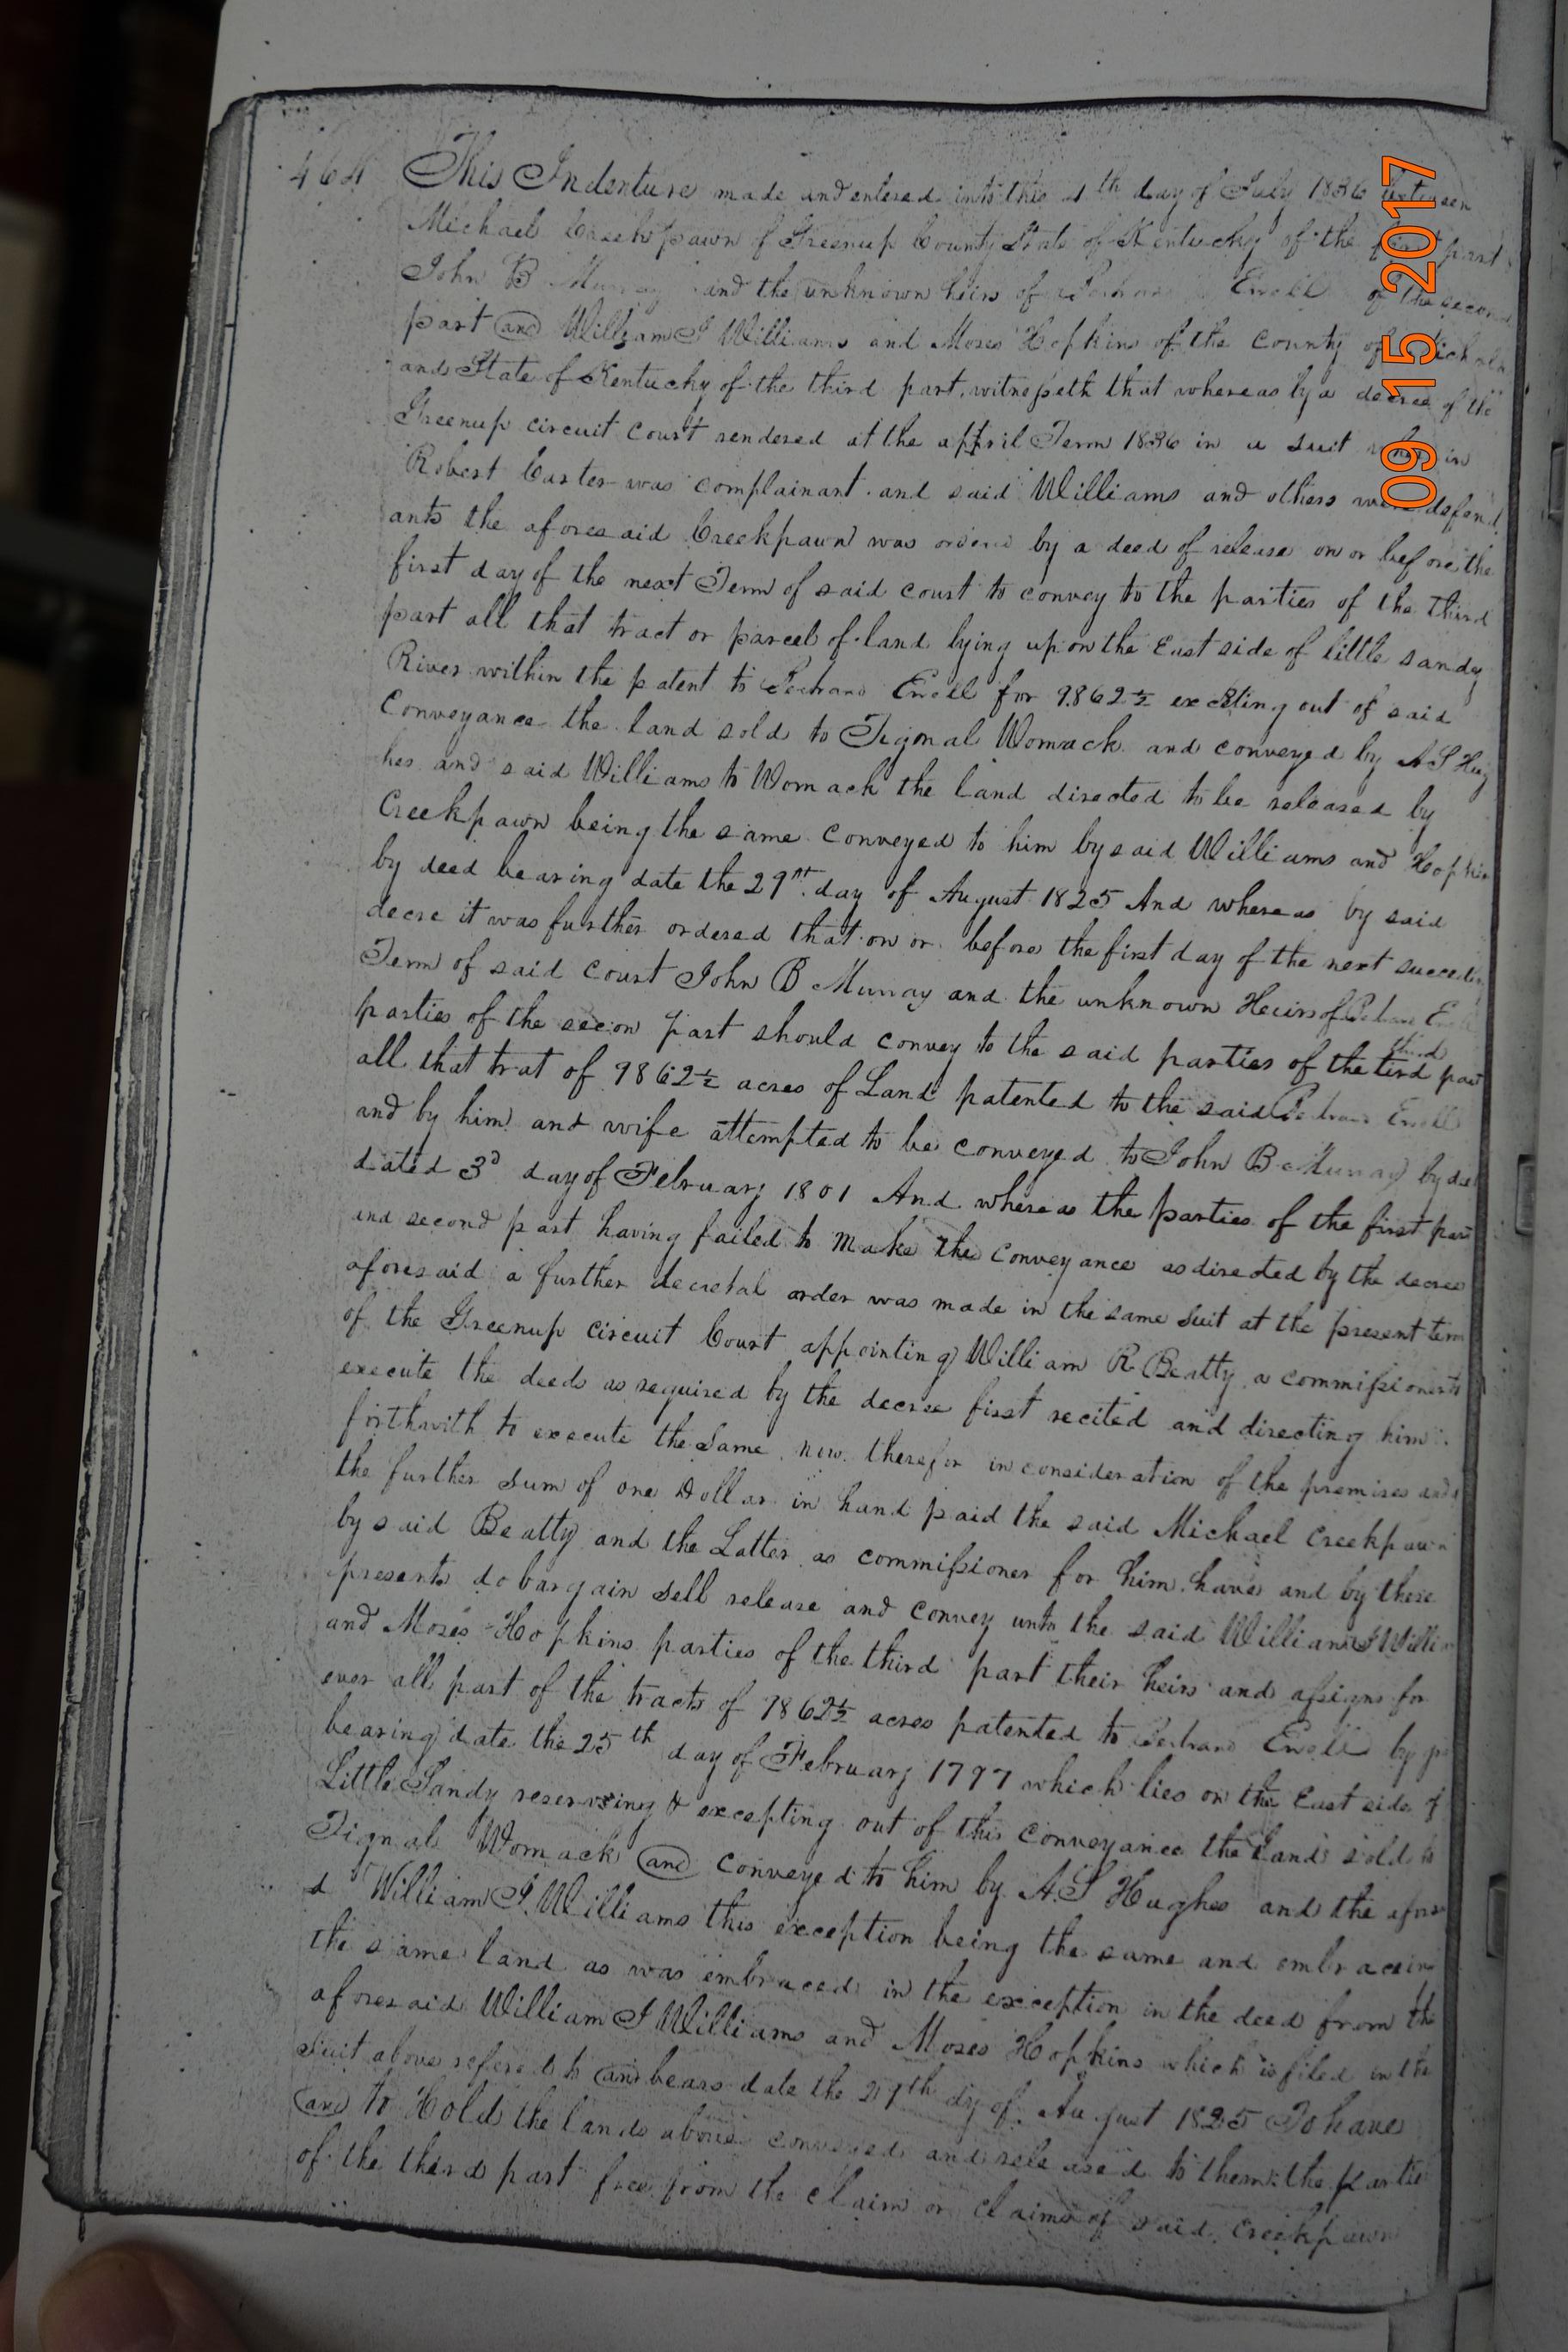 464 This Indenture made and entered into this 4th day of July 1836 between
Michael Creekpawn of Greenup County State of Kentucky of the first part
John B Murray and the unknown heirs of Ewell of the second
part and William I Williams and Moses Hopkins of the County of
and State of Kentucky of the third part, witnesseth that whereas by a decree of the
Greenup circuit court rendered at the appril Term 1836 in a suit wherein
Robert Carter was complainant and said Williams and others were defend
ants the aforesaid Creekpawn was orderd by a deed of release on or before the
first day of the next Term of said court to convey to the parties of the third
part all that tract or parcel of land lying upon the East side of little sandy
River within the patent to Bertrand Ewell for 9862½ excepting out of said
Conveyance the land sold to Tignal Womack and conveyed by A S Hug
hes and said Williams to Womack the land directed to be released by
Creekpawn being the same conveyed to him by said Williams and Hopkins
by deed bearing date the 29th day of August 1825 And whereas by said
decre it was further ordered that on or before the first day of the next succeedin
Term of said court John B Murray and the unknown Heirs of
parties of the secon part should convey to the said parties of the tird third part
all that trat of 9862½ acres of Land patented to the said Ewell
and by him and wife attempted to be conveyed to John B Murray by
dated 3d day of February 1801 And whereas the parties of the first part
and second part having failed to make the conveyance as directed by the decree
aforesaid a further decretal order was made in the same suit at the present term
of the Greenup circuit Court appointing William R. Beatty a commissioner to
execute the deeds as required by the decree first recited and directing him
forthwith to execute the same now therefor in consideration of the premises and
the further sum of one Dollar in hand paid the said Michael Creekpawn
by said Beatty and the Latter as commissioner for him have and by these
presents do bargain sell release and convey unto the said William I Willia
and Moses Hopkins parties of the third part their heirs and assigns for
ever all part of the tracts of 9862½ acres patented to Bertrand Ewell by
bearing date the 25th day of February 1797 which lies on the East side of
Little Sandy reserving & excepting out of this conveyance the Land sold to
Tignal Womack and conveyed to him by A. S Hughes and the afores
d William I. Williams this exception being the same and embracein
the same land as was embraced in the exception in the deed from the
aforesaid William I Williams and Moses Hopkins which is filed in the
suit above refered to and bears date the 29th dy of August 1825 To have
and to Hold the lands above conveyed and released to them the partie
of the third part free from the claim or claims of said Creekpawn
09 15 2017